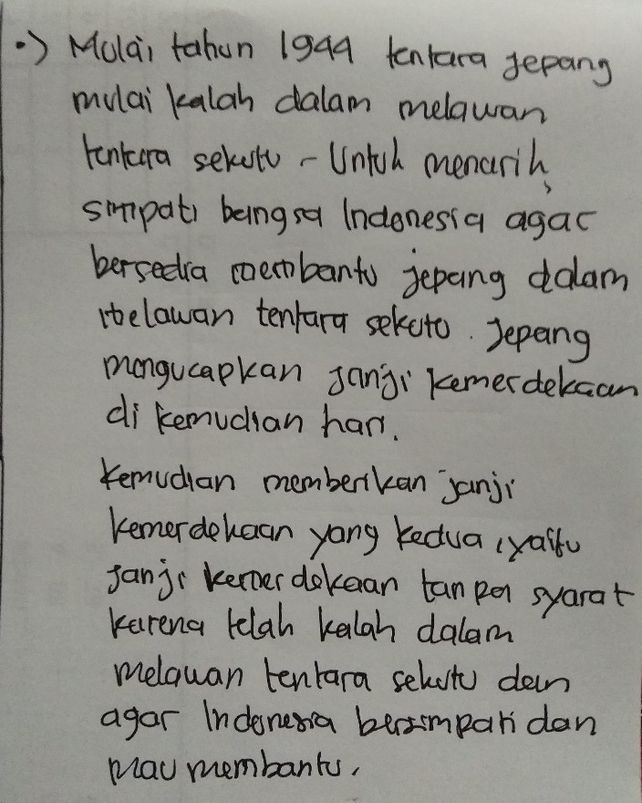 •) Mulai tahun 1944 tentara Jepang
mulai kalah dalam melawan
tentara sekutu - Untuk menarik
simpati bangsa Indonesia agar
bersedia membantu Jepang dalam
melawan tentara sekuto. Jepang
mengucapkan janji kemerdekaan
di kemudian hari.
Kemudian memberikan janji
kemerdekaan yang kedua, yaitu
Janji kemerdekaan tanpa syarat
karena telah kalah dalam
melawan tentara sekutu dan
agar Indonesia bersimpati dan
mau membantu.